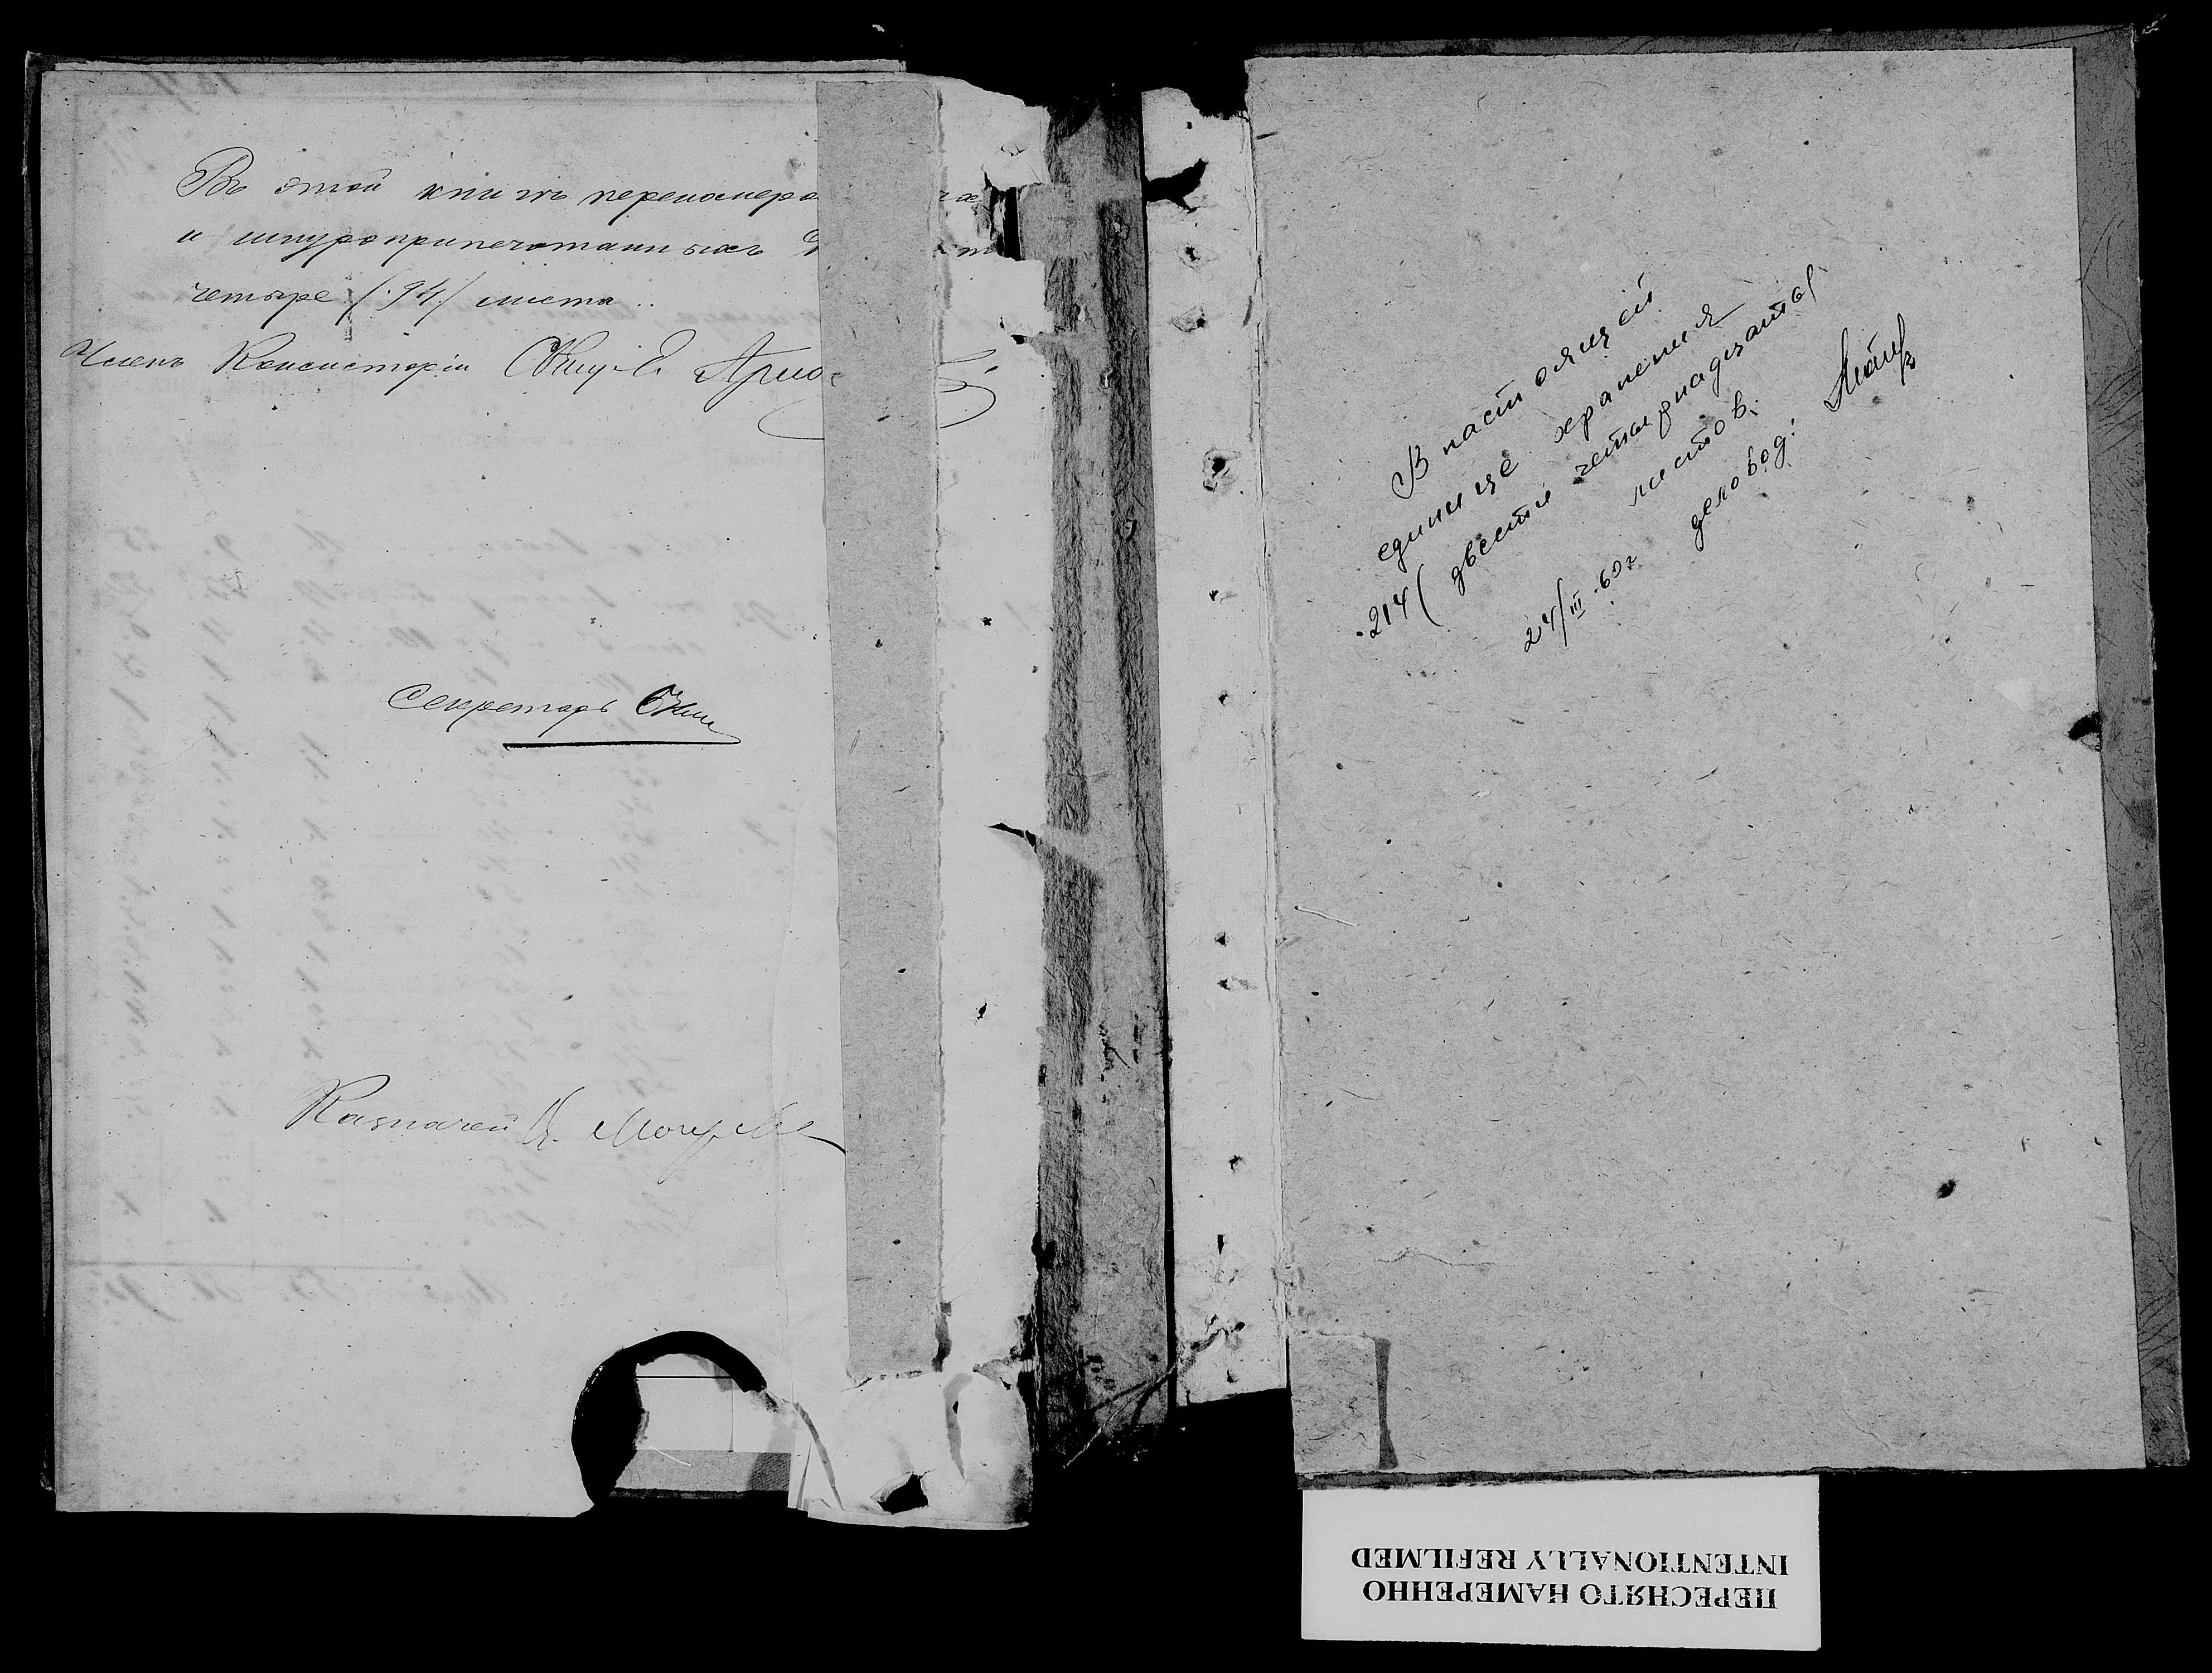 Въ этой книгѣ переномеро
и шнуроприпечатанныхъ
четыре /94/ листа..
Членъ Консисторіи
Секретарь
Казначей
В настоящей
единице хранения
214 (двести четырнадцать)
листов.
24/III-60г деловод:
ПЕРЕСНЯТО НАМЕРЕННО
INTENTIONALLY REFILMED